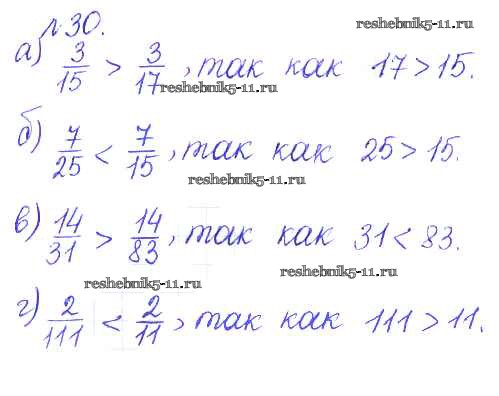 №30.
reshebnik5-11.ru
а) 3/15 > 3/17, так как 17 > 15.
reshebnik5-11.ru
б) 7/25 < 7/15, так как 25 > 15.
reshebnik5-11.ru
в) 14/31 > 14/83, так как 31 < 83.
reshebnik5-11.ru
reshebnik5-11.ru
г) 2/111 < 2/11, так как 111 > 11.